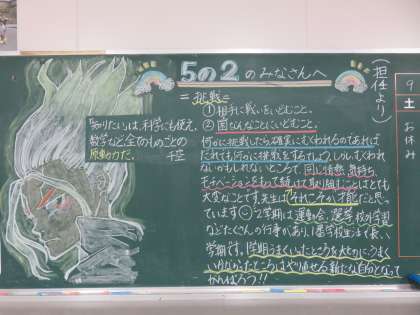 5の2のみなさんへ
(担任より)
=挑戦=
①相手に戦いをいどむこと。
②困なんなことにいどむこと。
「知りたい」は、科学にも使え、
数学など全てのものごとの
原動力だ。
千空
何かに挑戦したら確実にむくわれるのであれば
だれでも何かに挑戦をするでしょう。しかし、むくわれ
ないかもしれないところで、同じ情熱、気持ち、
モチベーションをもって続けて取り組むことはとても
大変なことです。先生は「それこそが才能だ」と思っ
ています。2学期は運動会、選学、校外学習
などたくさんの行事があり、1番学校生活で長い
学期です。1学期うまくいったところを大切に、うまく
いかなかったところはやり直せる新たな自分となって
がんばろう!!
9
土
お休み